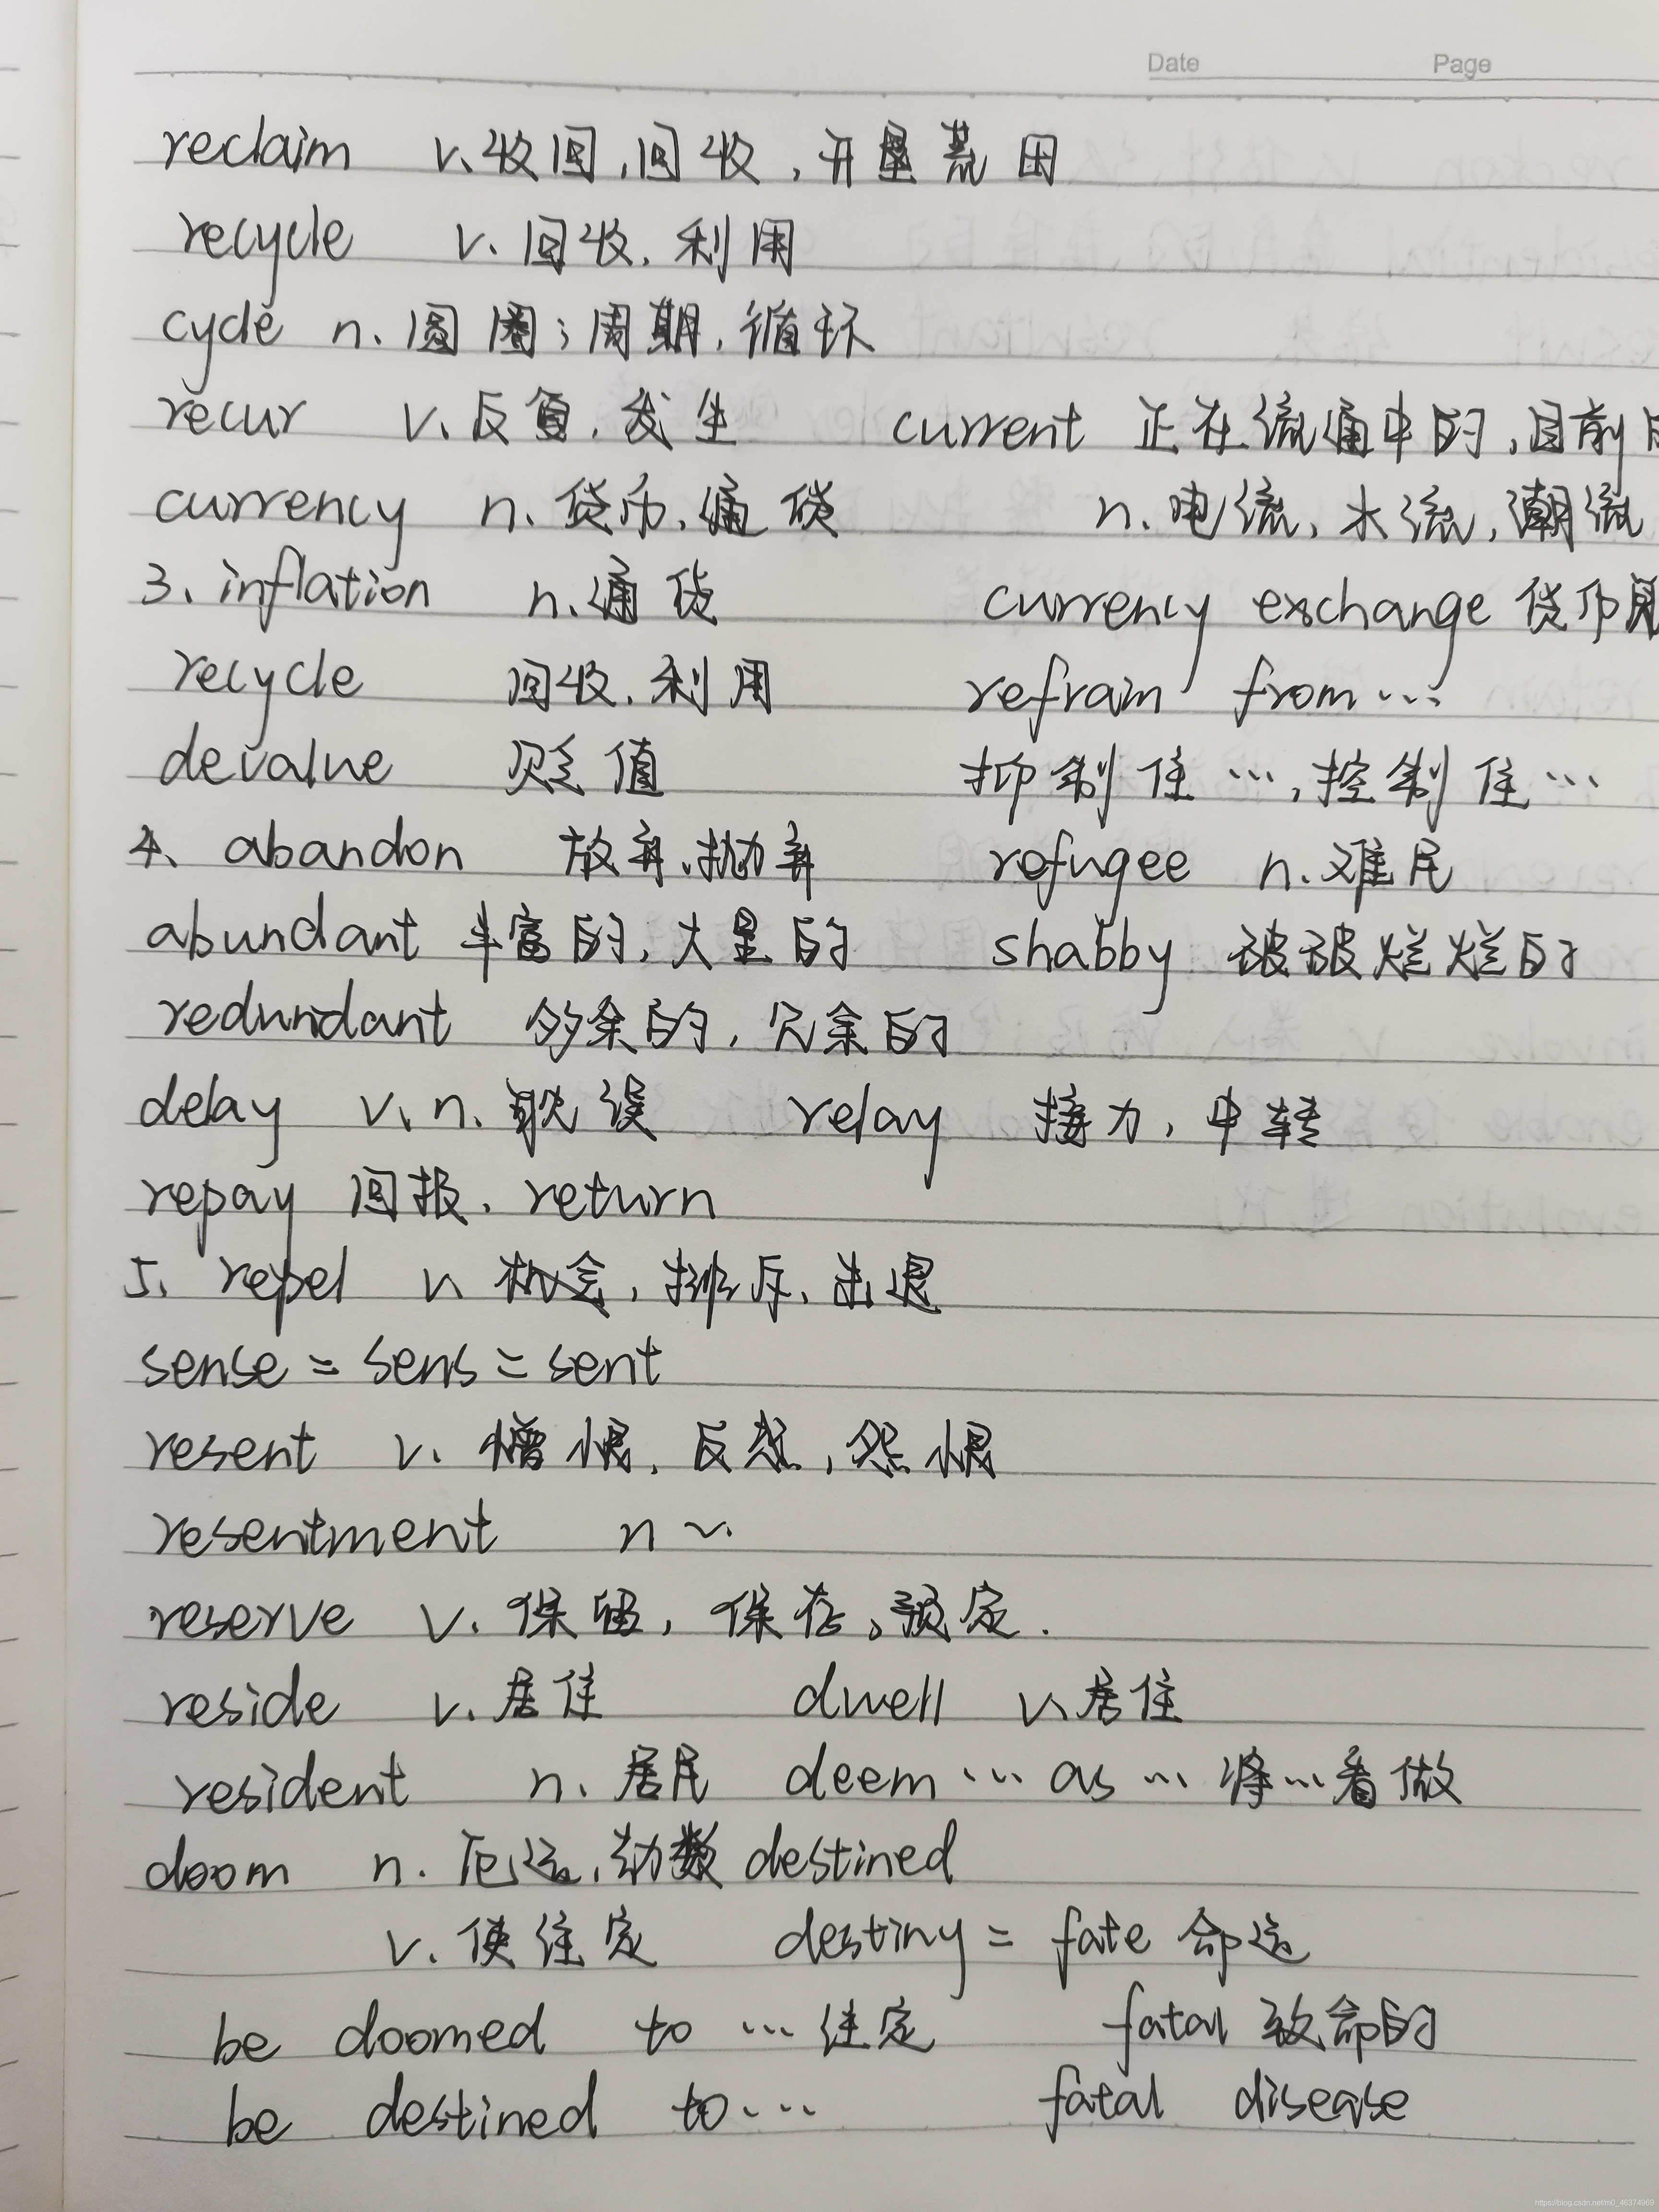 Date Page
reclaim v. 收回,回收,开垦荒田
recycle v. 回收, 利用
cycle n. 圆圈;周期,循环
recur v. 反复, 发生 current 正在流通中的,目前
currency n. 货币, 通货 n. 电流, 水流, 潮流
3. inflation n. 通货 currency exchange 货币
recycle 回收, 利用 refrain from...
devalue 贬值 抑制住...,控制住...
4. abandon 放弃,抛弃 refugee n. 难民
abundant 丰富的, 大量的 shabby 破破烂烂的
redundant 多余的, 冗余的
delay v. n. 耽误 relay 接力, 中转
repay 回报. return
5. repel v. 排斥, 击退
sense = sens = sent
resent v. 憎恨, 反感, 怨恨
resentment n ~.
reserve v. 保留, 保存, 预定.
reside v. 居住 dwell v. 居住
resident n. 居民 deem ... as ... 将...看做
doom n. 厄运, 劫数 destined
v. 使住定 destiny = fate 命运
be doomed to ... 住定 fatal 致命的
be destined to... fatal disease
https://blog.csdn.net/m0_46374969